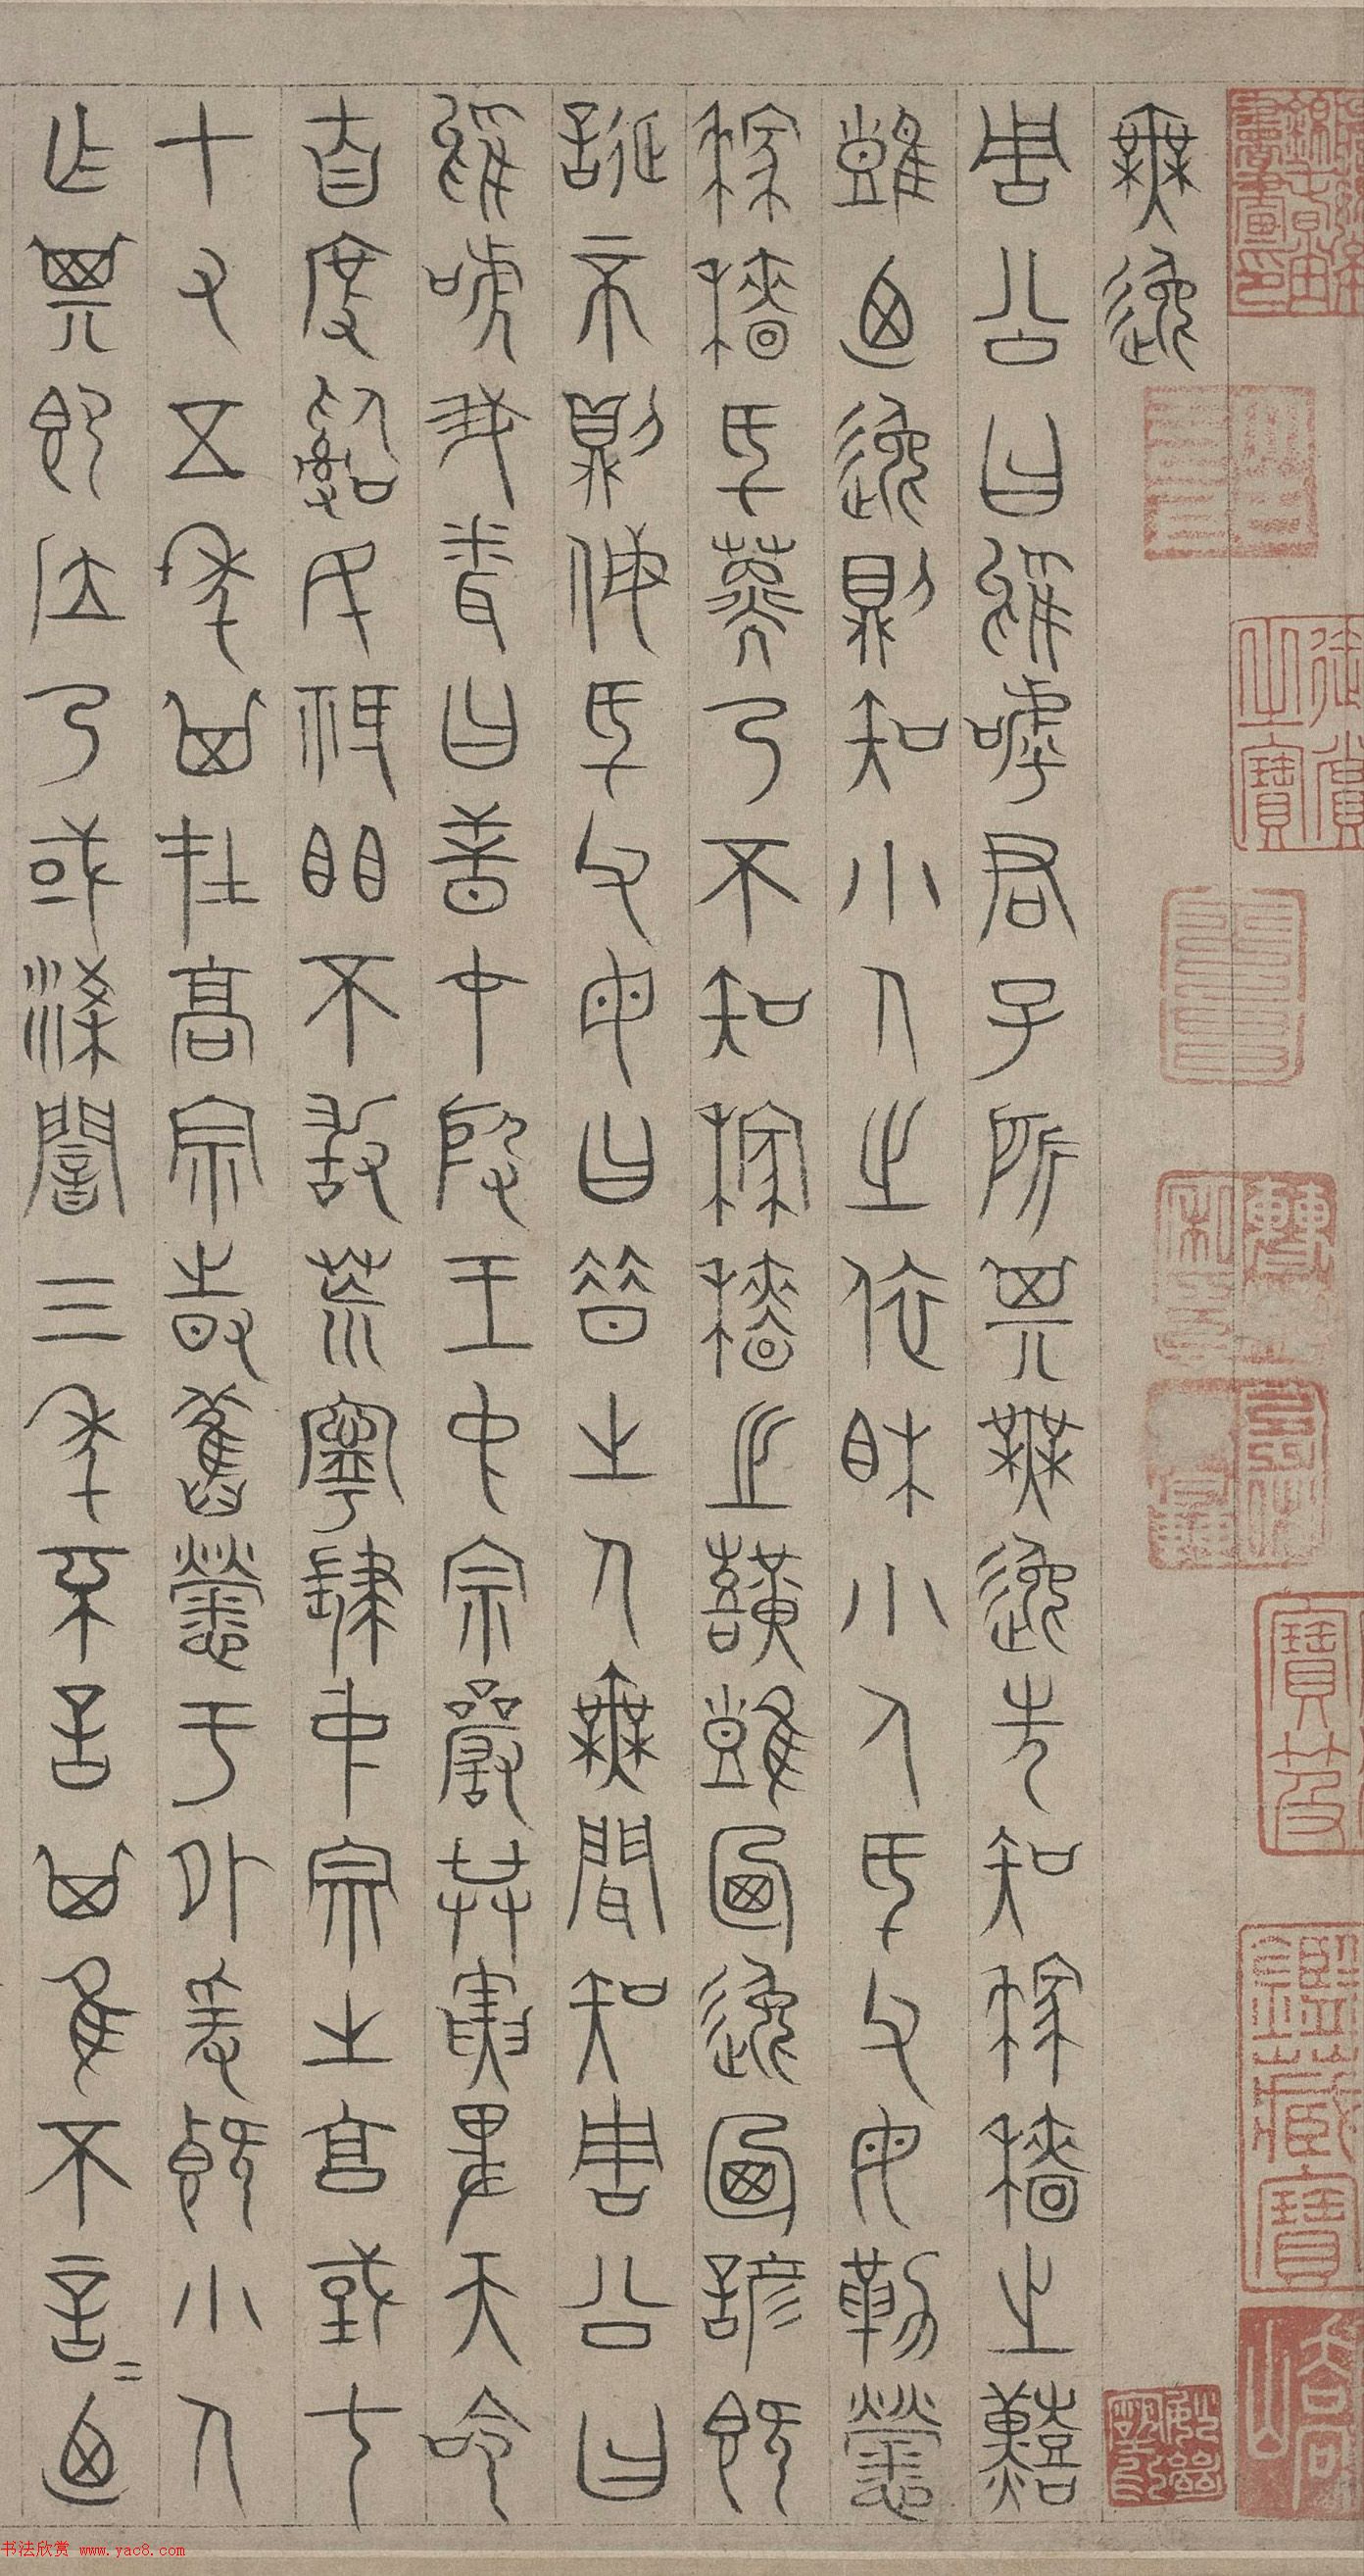 無逸
周公曰嗚呼君子所其無逸先知稼穡之艱
難乃逸則知小人之依相小人厥父母勤勞
稼穡厥子乃不知稼穡之艱難乃逸乃諺既
誕否則侮厥父母曰昔之人無聞知周公曰
嗚呼我聞曰昔在殷王中宗嚴恭寅畏天命
自度治民祗懼不敢荒寧肆中宗之享國七
十有五年其在高宗時舊勞于外爰暨小人
作其即位乃或涼闇三年弗言其惟不言=乃
书法欣赏 www.yac8.com